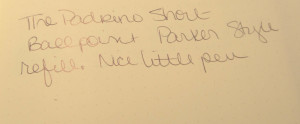 The Padrino Short
Ballpoint Parker Style
refill. Nice little pen